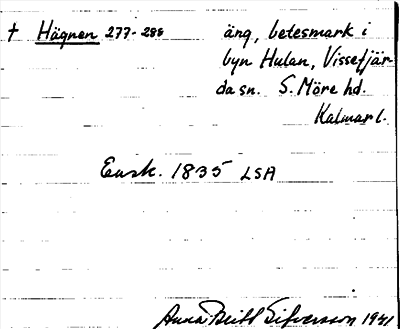 † Hägnen 277-288 äng, betesmark i
byn Hulan, Vissefjär-
da sn. S. Möre hd.
Kalmar l.
Ensk. 1835 LSA
Anna Britt Sifversson 1941